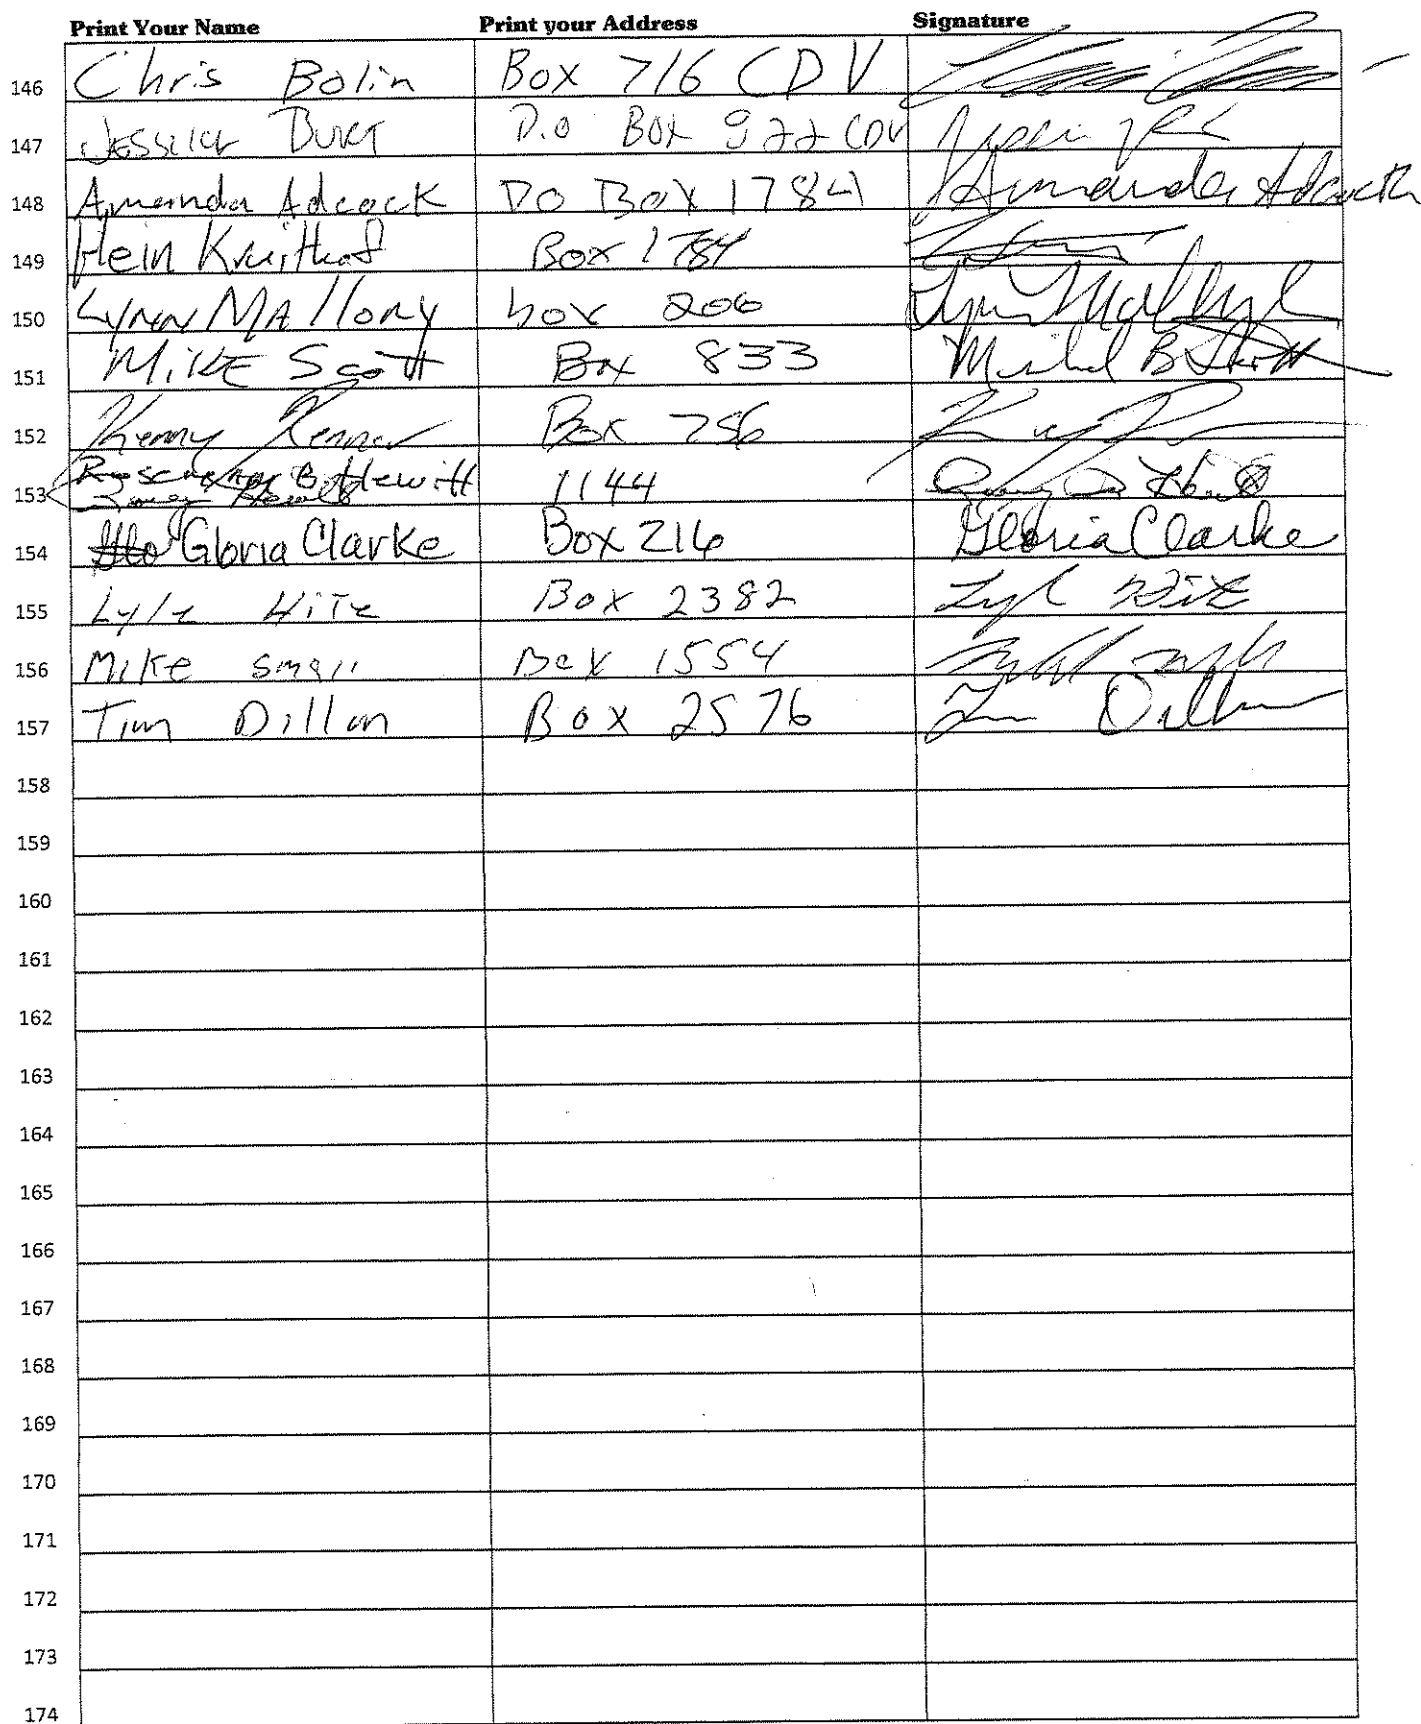 Print Your Name Print your Address Signature
146 Chris Bolin Box 716 CDV
147 Jessica Burt P.O Box 922 CDV
148 Amanda Adcock PO Box 1784 Amanda Adcock
149 Hein Kruithof Box 1784
150 Lynn MAllory box 206 Lynn Mallory
151 MiKE Scott Box 833 Michael B Scott
152 Kenny Renner Box 756
153 Rosemary B. Hewitt 1144
154 Gloria Clarke Box 216 Gloria Clarke
155 Lyle HiTe Box 2382 Lyle Hite
156 Mike small Box 1554
157 Tim Dillon Box 2576 Tim Dillon
158
159
160
161
162
163
164
165
166
167
168
169
170
171
172
173
174